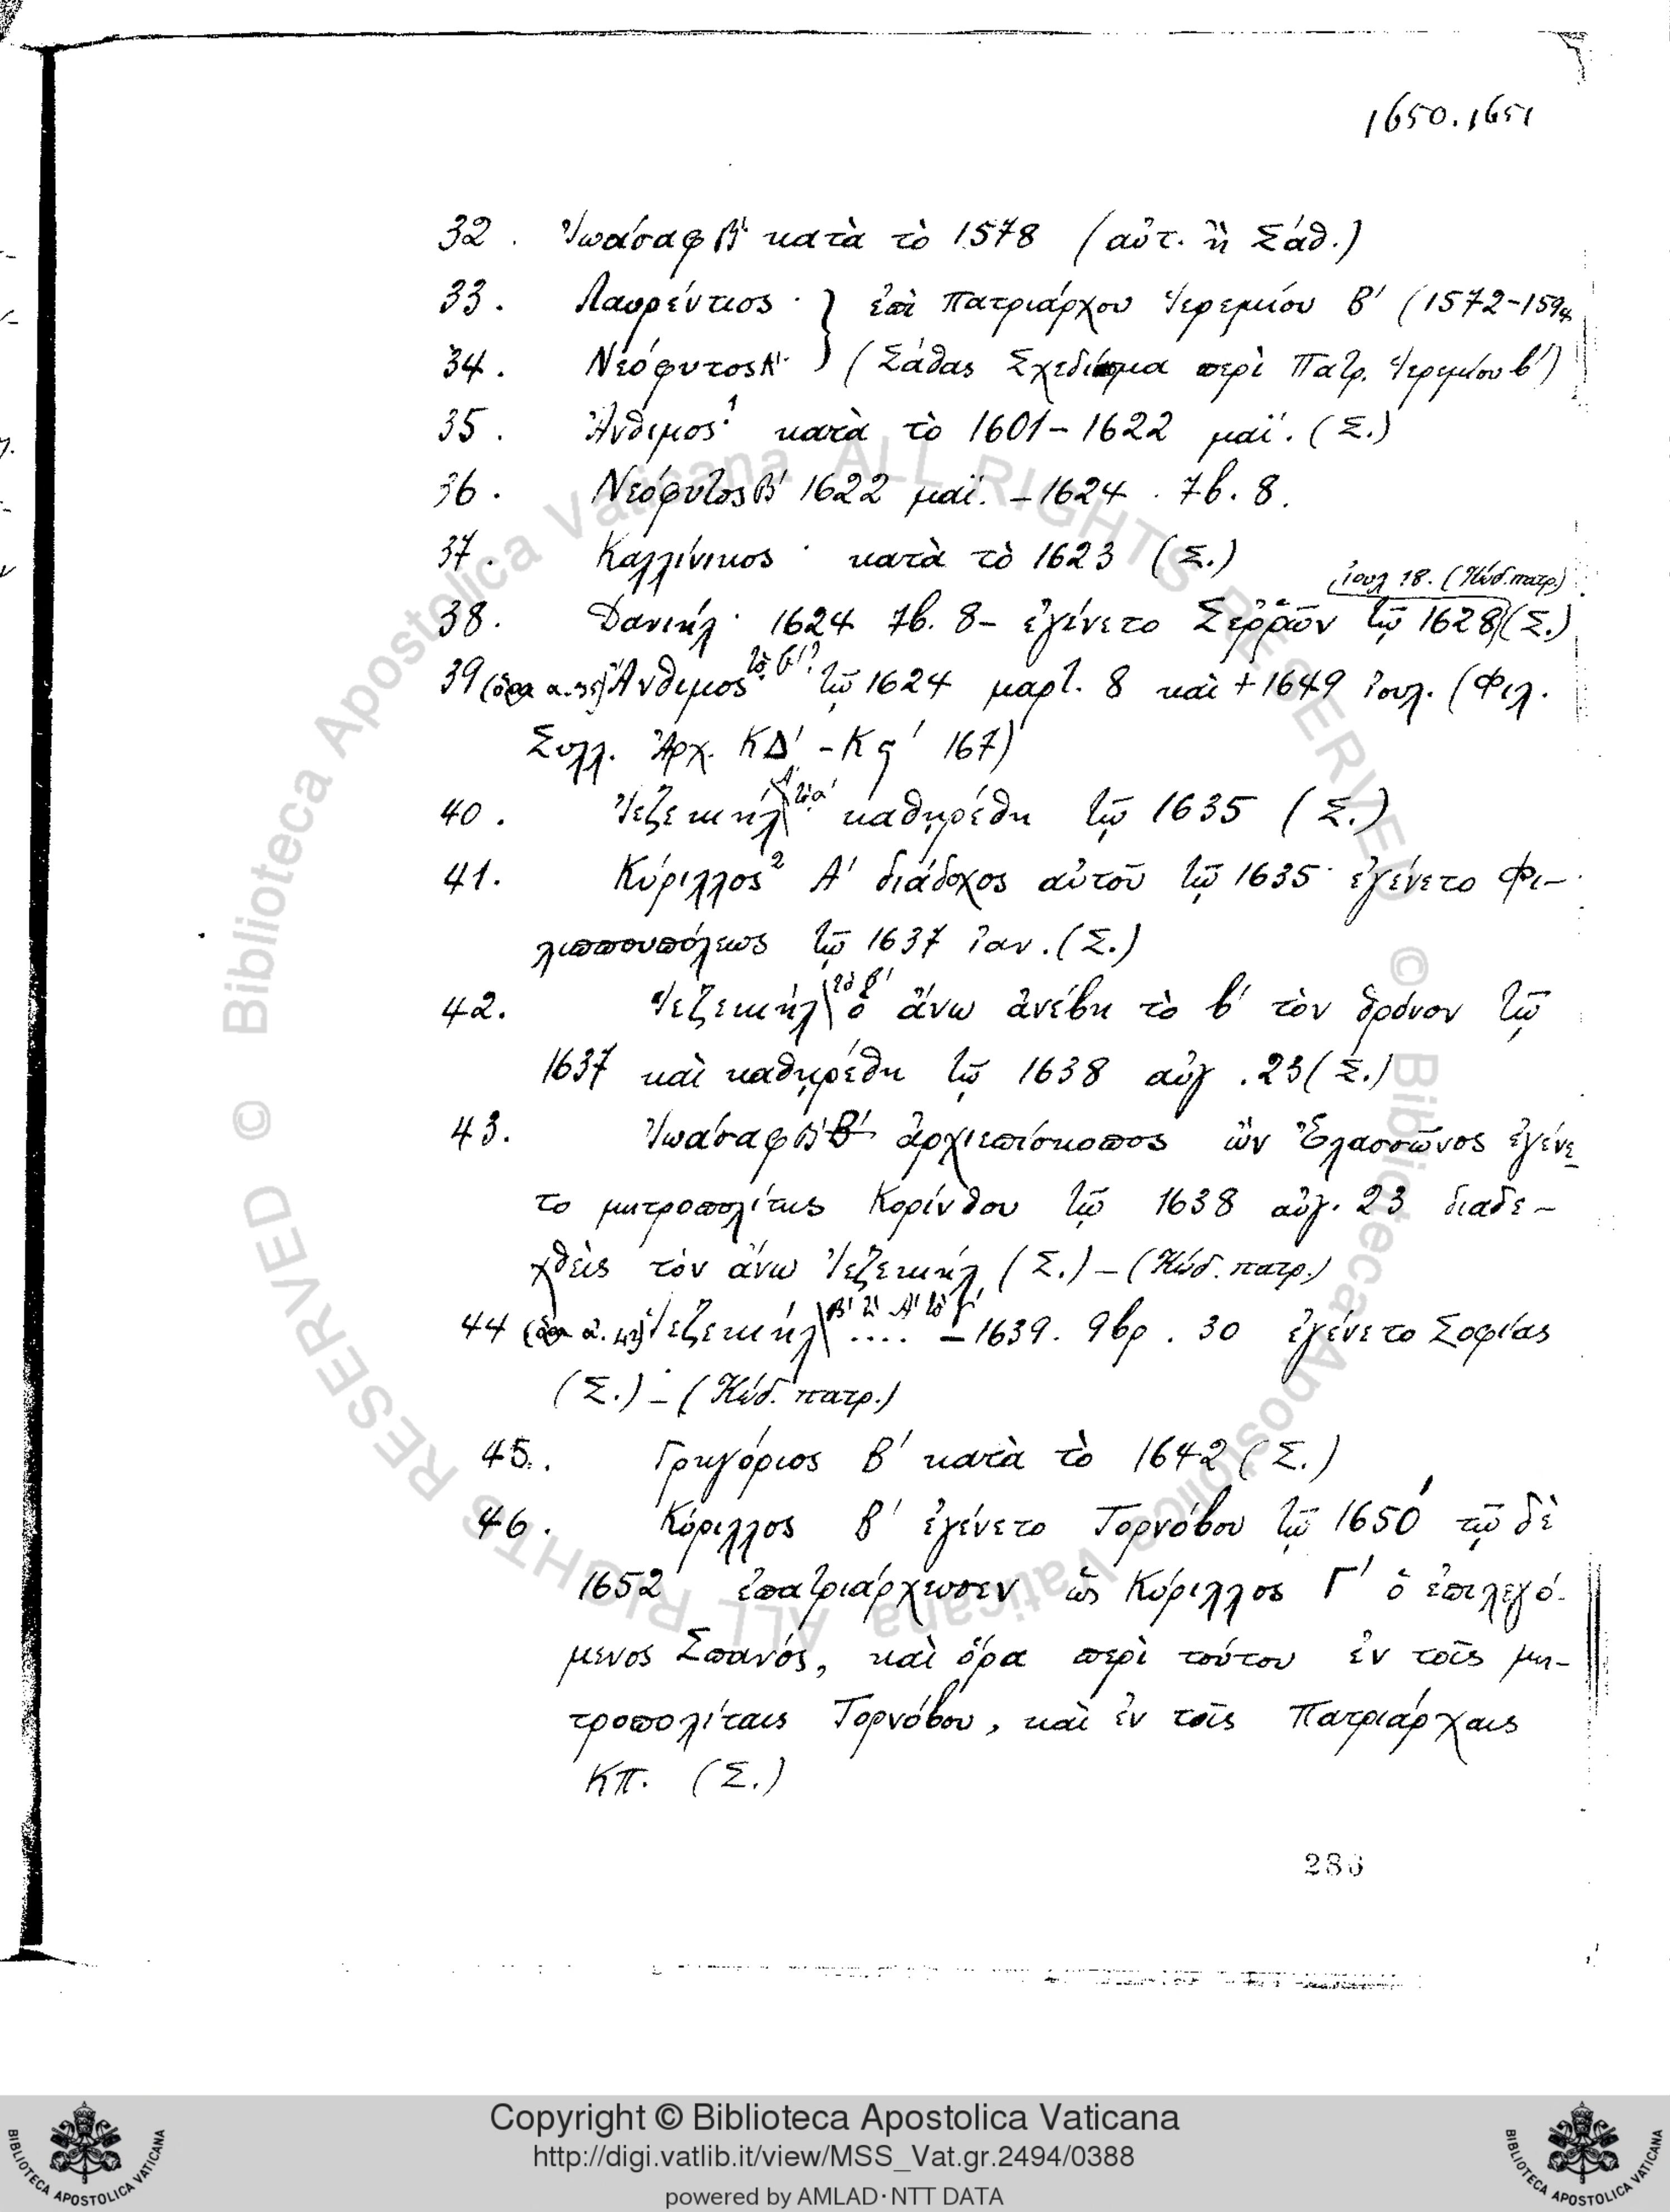 1650.1651
32. Ἰωάσαφ Β' κατὰ τὸ 1578 (αὐτ. ἢ Σάθ.)
33. Λαυρέντιος · } ἐπὶ Πατριάρχου Ἱερεμίου Β' (1572-1594
34. Νεόφυτος Α' · ) (Σάθας Σχεδίασμα περὶ Πατρ. Ἱερεμίου β')
35. Ἄνθιμος¹ κατὰ τὸ 1601-1622 μαΐ. (Σ.)
36. Νεόφυτος Β' 1622 μαΐ. - 1624. 7β. 8.
37. Καλλίνικος · κατὰ τὸ 1623 (Σ.)
ἰουλ 18. (Κώδ. πατρ.)
38. Δανιήλ · 1624 7β. 8- ἐγένετο Σερρῶν τῷ 1628 (Σ.)
39 (ὅρα α. 35) Ἄνθιμος τὸ β'? τῷ 1624 μαρτ. 8 καὶ + 1649 ἰουλ. (Φιλ.
Συλλ. Ἀρχ. ΚΔ' - Κϛ' 167)
40. Ἰεζεκιὴλ Α' τὸ α' καθῃρέθη τῷ 1635 (Σ.)
41. Κύριλλος² Α' διάδοχος αὐτοῦ τῷ 1635 · ἐγένετο Φι-
λιππουπόλεως τῷ 1637 ἰαν. (Σ.)
42. Ἰεζεκιὴλ τὸ β' ὁ ἄνω ἀνέβη τὸ β' τὸν θρόνον τῷ
1637 καὶ καθῃρέθη τῷ 1638 αὐγ. 23 (Σ.)
43. Ἰωάσαφ Β' ἀρχιεπίσκοπος ὢν Ἐλασσῶνος ἐγένε
το μητροπολίτης Κορίνθου τῷ 1638 αὐγ. 23 διαδε-
χθεὶς τὸν ἄνω Ἰεζεκιὴλ (Σ.) - (Κώδ. πατρ.)
44 (ὅρα α. 42) Ἰεζεκιὴλ .... - 1639. 9βρ. 30 ἐγένετο Σοφίας
(Σ.) - (Κώδ. πατρ.)
45. Γρηγόριος Β' κατὰ τὸ 1642 (Σ.)
46. Κύριλλος Β' ἐγένετο Τορνόβου τῷ 1650 τῷ δὲ
1652 ἐπατριάρχευσεν ὡς Κύριλλος Γ' ὁ ἐπιλεγό-
μενος Σπανός, καὶ ὅρα περὶ τούτου ἐν τοῖς μη-
τροπολίταις Τορνόβου, καὶ ἐν τοῖς Πατριάρχαις
ΚΠ. (Σ.)
286
© Biblioteca Apostolica Vaticana ALL RIGHTS RESERVED © Biblioteca Apostolica Vaticana ALL RIGHTS RESERVED
Copyright © Biblioteca Apostolica Vaticana
http://digi.vatlib.it/view/MSS_Vat.gr.2494/0388
powered by AMLAD·NTT DATA
BIBLIOTECA APOSTOLICA VATICANA
BIBLIOTECA APOSTOLICA VATICANA